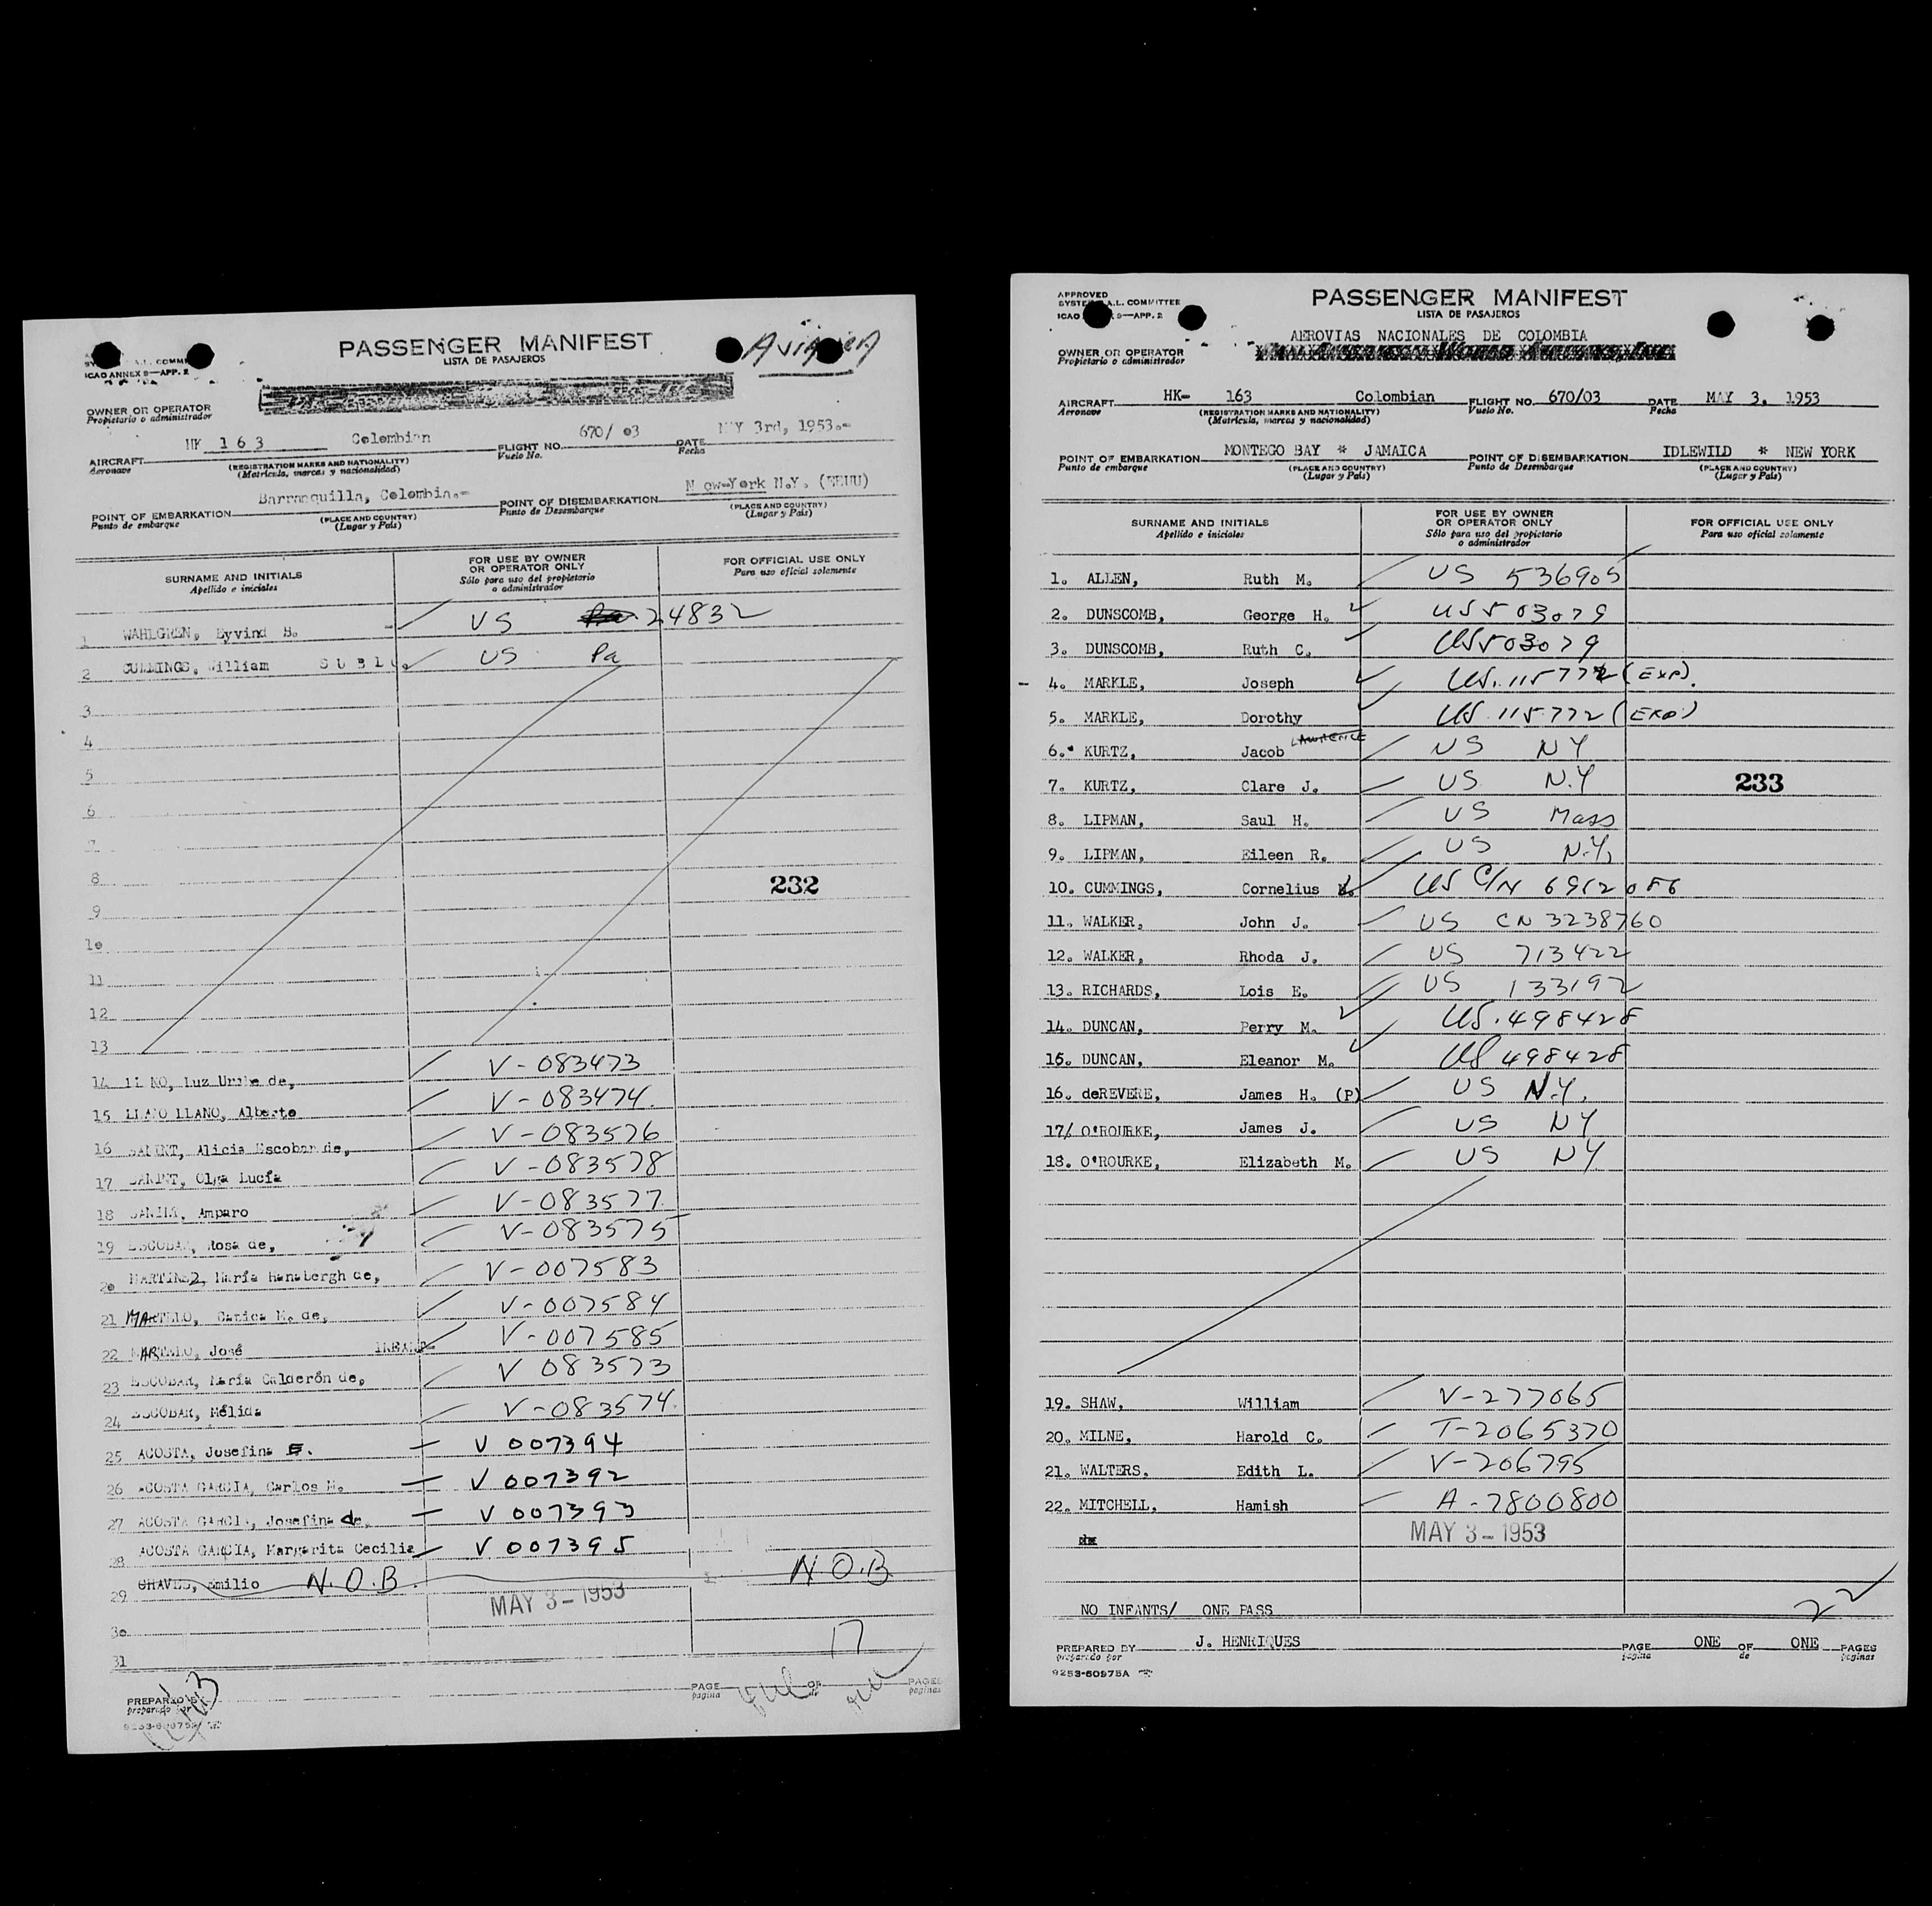 PASSENGER MANIFEST
LISTA DE PASAJEROS
Avianca
A.L. COMMI
ICAO ANNEX 9—APP. 2
OWNER OR OPERATOR
Propietario o administrador
AIRCRAFT HK 163 Colombian FLIGHT NO. 670/ 03 DATE MAY 3rd, 1953.-
Aeronave (REGISTRATION MARKS AND NATIONALITY) Vuelo No. Fecha
(Matrícula, marcas y nacionalidad)
POINT OF EMBARKATION Barranquilla, Colombia.- POINT OF DISEMBARKATION New-York N.Y. (EEUU)
Punto de embarque (PLACE AND COUNTRY) Punto de Desembarque (PLACE AND COUNTRY)
(Lugar y País) (Lugar y País)
SURNAME AND INITIALS FOR USE BY OWNER OR OPERATOR ONLY FOR OFFICIAL USE ONLY
Apellido e iniciales Sólo para uso del propietario o administrador Para uso oficial solamente
1 WAHLGREN, Eyvind B. US 24832
2 CUMMINGS, William US Pa
3
4
5
6
7
8 232
9
10
11
12
13
14 LLANO, Luz Uribe de, V-083473
15 LLANO LLANO, Alberto V-083474.
16 SANINT, Alicia Escobar de, V-083576
17 SANINT, Olga Lucía V-083578
18 SANINT, Amparo V-083577.
19 ESCOBAR, Rosa de, V-083575
20 MARTINEZ, María Hanabergh de, V-007583
21 MARTELO, Catica M. de, V-007584
22 MARTELO, José V-007585
23 ESCOBAR, María Calderón de, V 083573
24 ESCOBAR, Mélida V-083574.
25 ACOSTA, Josefina E. V 007394
26 ACOSTA GARCIA, Carlos M. V 007392
27 ACOSTA GARCIA, Josefina de, V 007393
28 ACOSTA GARCIA, Margarita Cecilia V 007395
29 CHAVES, Emilio N.O.B. N.O.B
MAY 3-1953
30
31 17
PREPARED BY PAGE OF PAGES
preparado por pagina de paginas
APPROVED
SYSTEM A.L. COMMITTEE
ICAO 9—APP. 2
PASSENGER MANIFEST
LISTA DE PASAJEROS
AEROVIAS NACIONALES DE COLOMBIA
OWNER OR OPERATOR Pan American World Airways, Inc.
Propietario o administrador
AIRCRAFT HK- 163 Colombian FLIGHT NO. 670/03 DATE MAY 3, 1953
Aeronave (REGISTRATION MARKS AND NATIONALITY) Vuelo No. Fecha
(Matrícula, marcas y nacionalidad)
POINT OF EMBARKATION MONTEGO BAY * JAMAICA POINT OF DISEMBARKATION IDLEWILD * NEW YORK
Punto de embarque (PLACE AND COUNTRY) Punto de Desembarque (PLACE AND COUNTRY)
(Lugar y País) (Lugar y País)
SURNAME AND INITIALS FOR USE BY OWNER OR OPERATOR ONLY FOR OFFICIAL USE ONLY
Apellido e iniciales Sólo para uso del propietario o administrador Para uso oficial solamente
1. ALLEN, Ruth M. US 536905
2. DUNSCOMB, George H. US 503079
3. DUNSCOMB, Ruth C. US 503079
4. MARKLE, Joseph US. 115772 (EXP).
5. MARKLE, Dorothy US. 115772 (EXP)
6. KURTZ, Jacob LAWRENCE US NY
7. KURTZ, Clare J. US N.Y 233
8. LIPMAN, Saul H. US Mass
9. LIPMAN, Eileen R. US N.Y.
10. CUMMINGS, Cornelius US C/N 6912086
11. WALKER, John J. US CN 3238760
12. WALKER, Rhoda J. US 713422
13. RICHARDS, Lois E. US 133192
14. DUNCAN, Perry M. US. 498428
15. DUNCAN, Eleanor M. US 498428
16. deREVERE, James H. (P) US N.Y.
17/ O'ROURKE, James J. US NY
18. O'ROURKE, Elizabeth M. US NY
19. SHAW, William V-277065
20. MILNE, Harold C. T-2065370
21. WALTERS. Edith L. V-206795
22. MITCHELL, Hamish A-7800800
MAY 3-1953
NO INFANTS/ ONE PASS 22
PREPARED BY J. HENRIQUES PAGE ONE OF ONE PAGES
preparado por pagina de paginas
9253-60975A